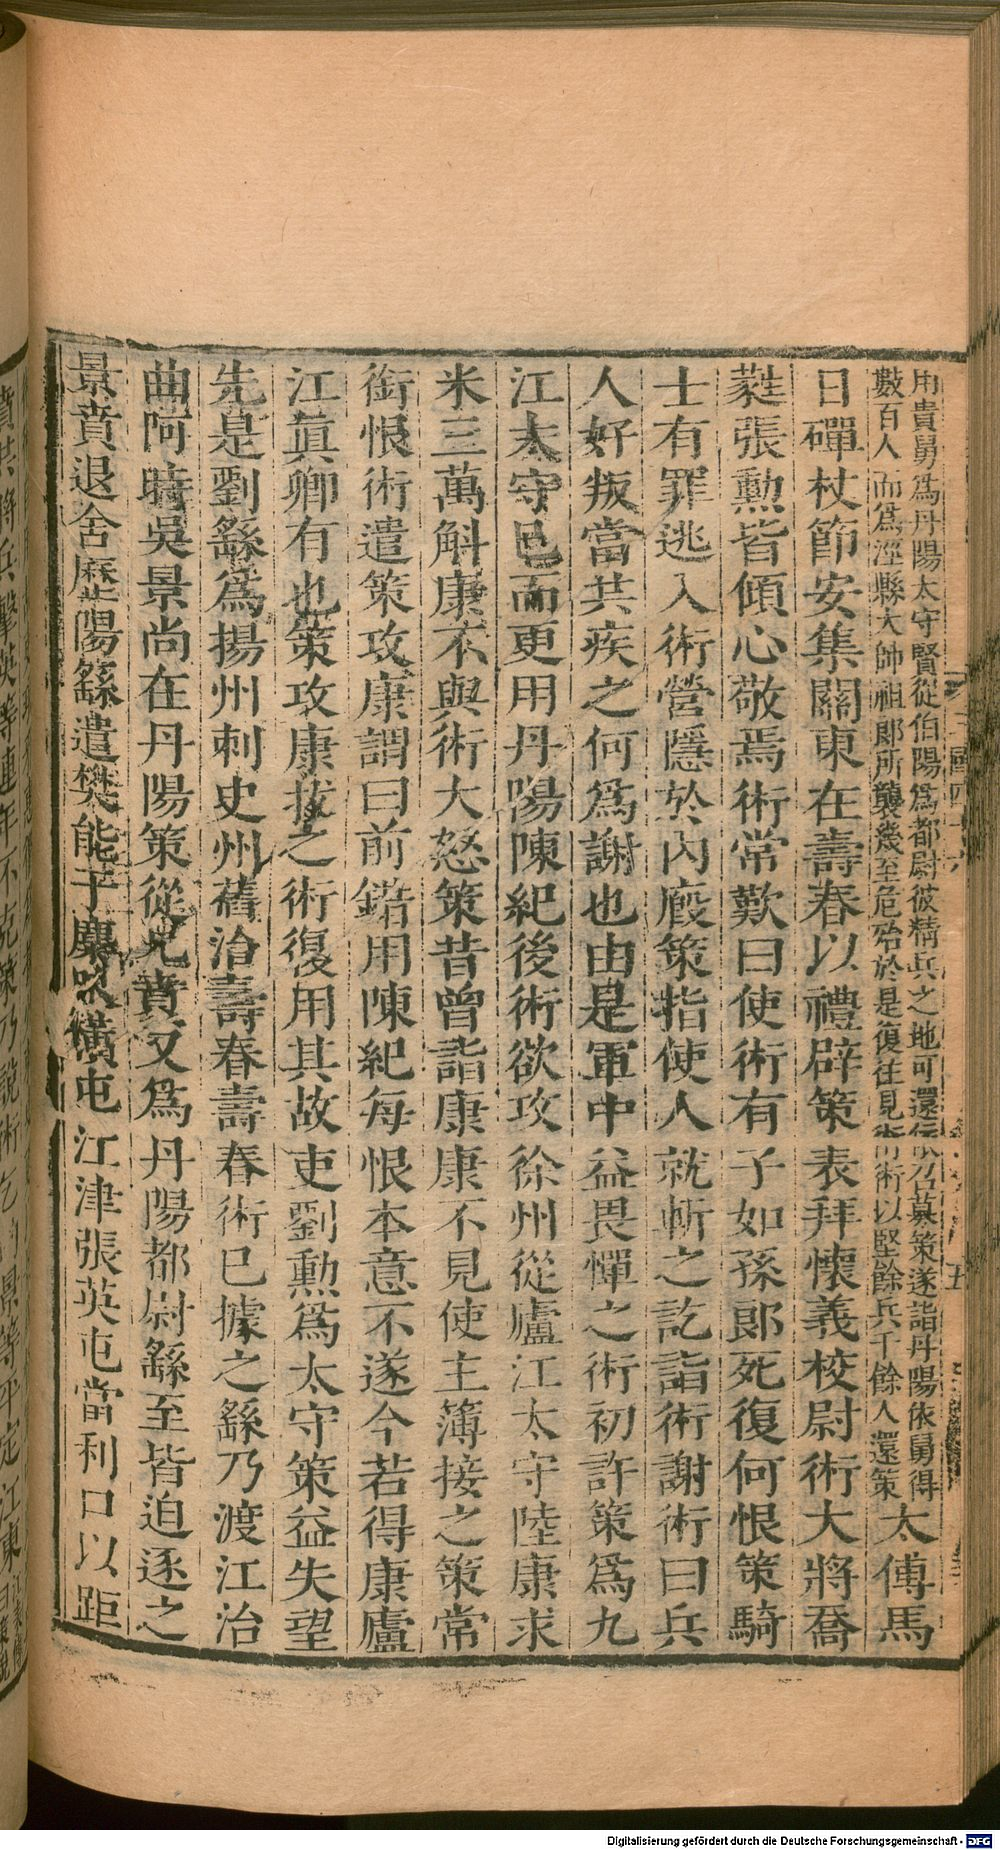 用貴舅爲丹陽太守賢從伯陽爲都尉彼精兵之地可還依召募策遂詣丹陽依舅得
數百人而爲涇縣大帥祖郎所襲幾至危殆於是復往見術術以堅餘兵千餘人還策
太傅馬
日磾杖節安集關東在壽春以禮辟策表拜懷義校尉術大將喬
蕤張勲皆傾心敬焉術常歎曰使術有子如孫郎死復何恨策騎
士有罪逃入術營隱於內廄策指使人就斬之訖詣術謝術曰兵
人好叛當共疾之何爲謝也由是軍中益畏憚之術初許策爲九
江太守已而更用丹陽陳紀後術欲攻徐州從廬江太守陸康求
米三萬斛康不與術大怒策昔曾詣康康不見使主簿接之策常
銜恨術遣策攻康謂曰前錯用陳紀每恨本意不遂今若得康廬
江眞卿有也策攻康拔之術復用其故吏劉勲爲太守策益失望
先是劉繇爲揚州刺史州舊治壽春壽春術已據之繇乃渡江治
曲阿時吳景尚在丹陽策從兄賁又爲丹陽都尉繇至皆迫逐之
景賁退舍歷陽繇遣樊能于麋橫屯江津張英屯當利口以距
賁共將兵擊英等連年不克策乃說術乞
景等平定江東
Digitalisierung gefördert durch die Deutsche Forschungsgemeinschaft - DFG